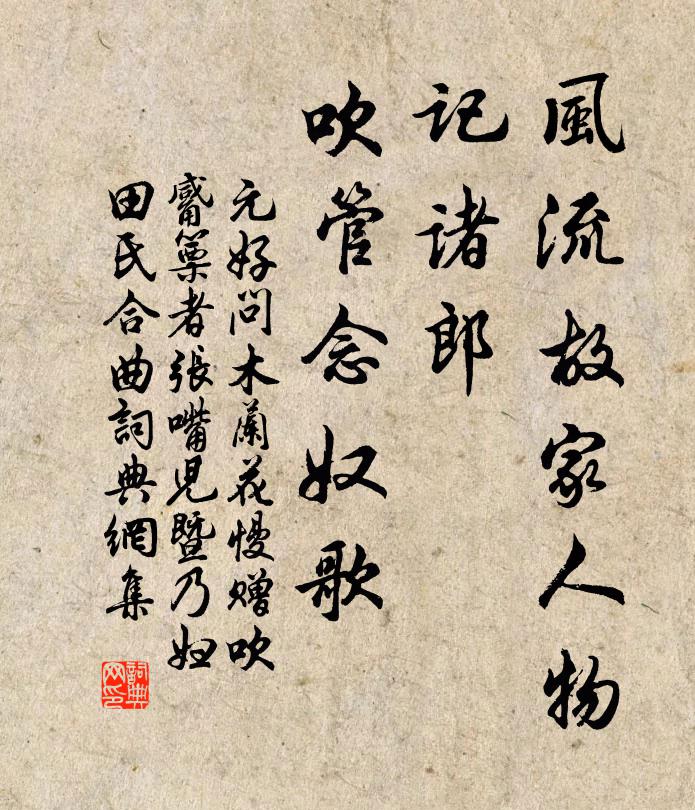 風流故家人物
記諸郎
吹管念奴歌
元好問木蘭花慢贈吹
觱篥者張嘴兒暨乃妲
田氏合曲詞典網集
詞典网印